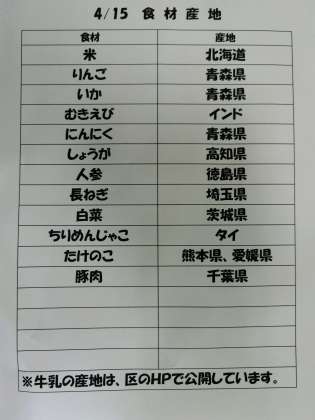 4/15 食材産地
食材 産地
米 北海道
りんご 青森県
いか 青森県
むきえび インド
にんにく 青森県
しょうが 高知県
人参 徳島県
長ねぎ 埼玉県
白菜 茨城県
ちりめんじゃこ タイ
たけのこ 熊本県、愛媛県
豚肉 千葉県
※牛乳の産地は、区のHPで公開しています。